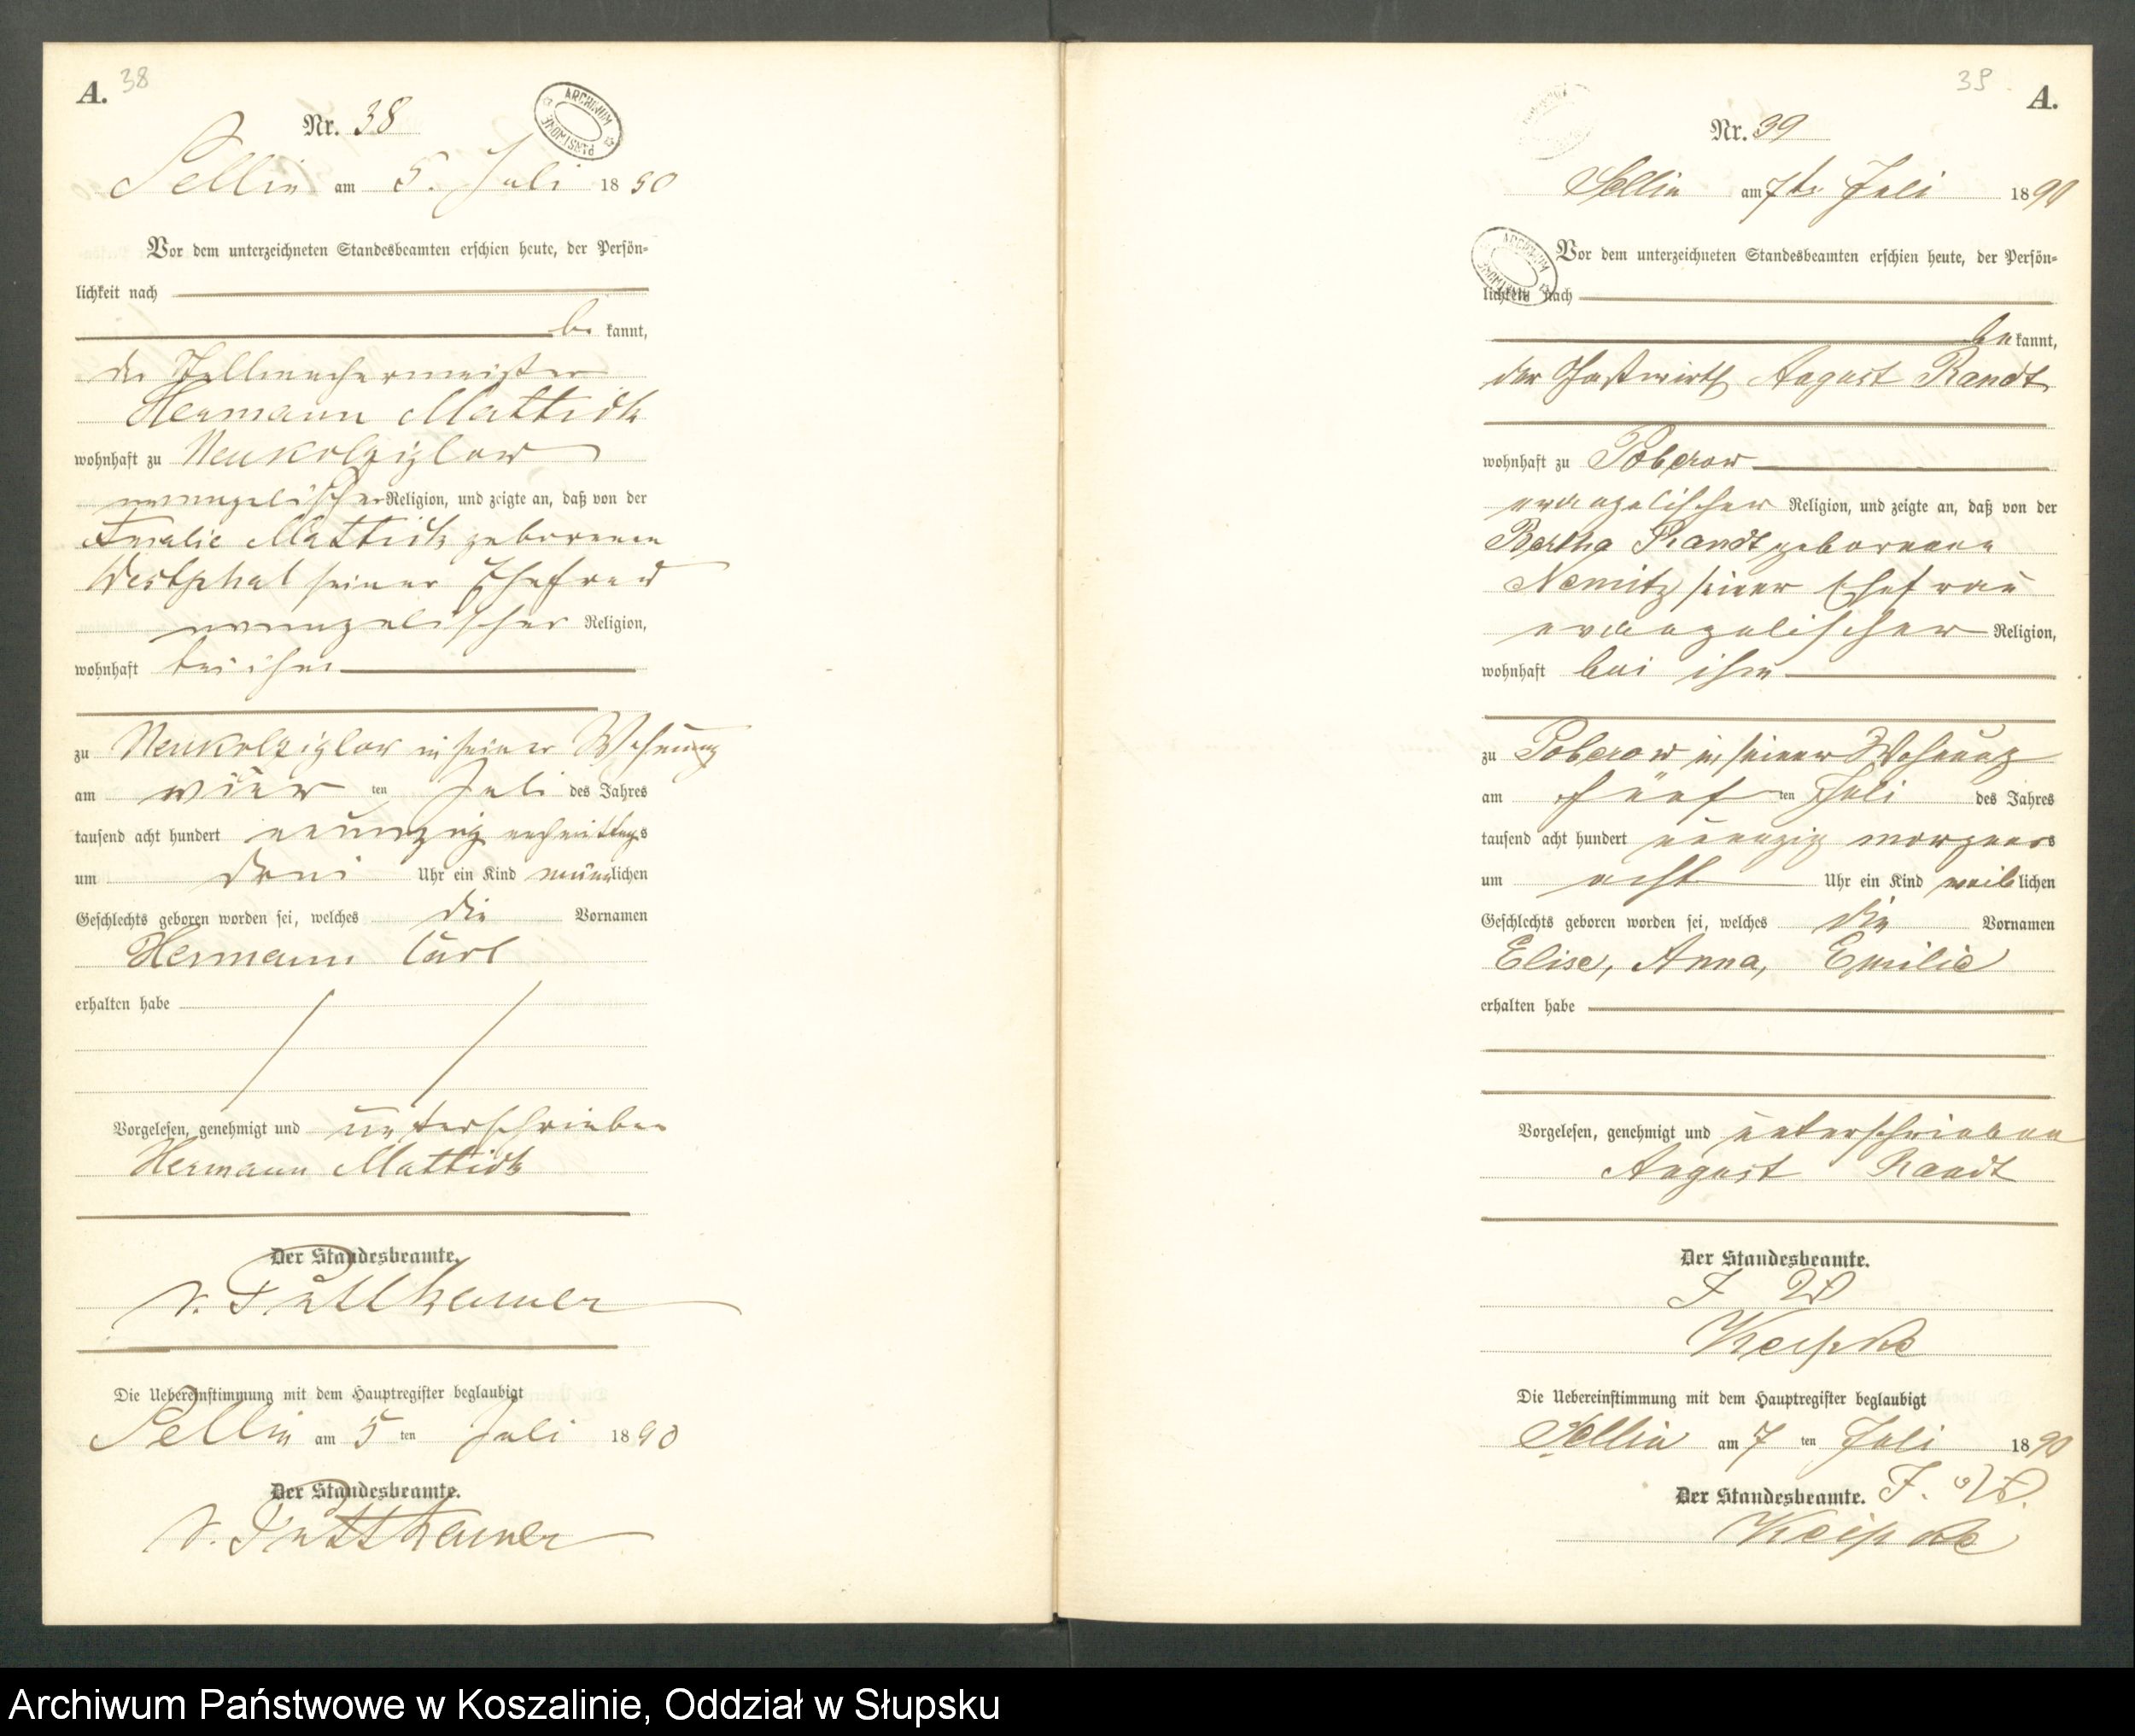 A. 38
ARCHIWUM PAŃSTWOWE
Nr. 38
Sellin am 5. Juli 1890
Vor dem unterzeichneten Standesbeamten erschien heute, der Persön-
lichkeit nach
be kannt,
der Stellmachermeister
Hermann Mattick
wohnhaft zu Neukolziglow
evangelischer Religion, und zeigte an, daß von der
Amalie Mattick geborenen
Westphal seiner Ehefrau
evangelischer Religion,
wohnhaft bei ihm
zu Neukolziglow in seiner Wohnung
am vier ten Juli des Jahres
tausend acht hundert neunzig nachmittags
um drei Uhr ein Kind männlichen
Geschlechts geboren worden sei, welches die Vornamen
Hermann Carl
erhalten habe
Vorgelesen, genehmigt und unterschrieben
Hermann Mattick
Der Standesbeamte.
v. Puttkamer
Die Uebereinstimmung mit dem Hauptregister beglaubigt
Sellin am 5 ten Juli 1890
Der Standesbeamte.
v. Puttkamer
39 A.
Nr. 39
Sellin am 7te Juli 1890
ARCHIWUM PAŃSTWOWE
Vor dem unterzeichneten Standesbeamten erschien heute, der Persön-
lichkeit nach
be kannt,
der Gastwirth August Randt
wohnhaft zu Poberow
evangelischer Religion, und zeigte an, daß von der
Bertha Randt geborenen
Nemitz seiner Ehefrau
evangelischer Religion,
wohnhaft bei ihm
zu Poberow in seiner Wohnung
am fünf ten Juli des Jahres
tausend acht hundert neunzig morgens
um acht Uhr ein Kind weiblichen
Geschlechts geboren worden sei, welches die Vornamen
Elise, Anna, Emilie
erhalten habe
Vorgelesen, genehmigt und unterschrieben
August Randt
Der Standesbeamte.
J V
Die Uebereinstimmung mit dem Hauptregister beglaubigt
Sellin am 7 ten Juli 1890
Der Standesbeamte. J. V.
Archiwum Państwowe w Koszalinie, Oddział w Słupsku